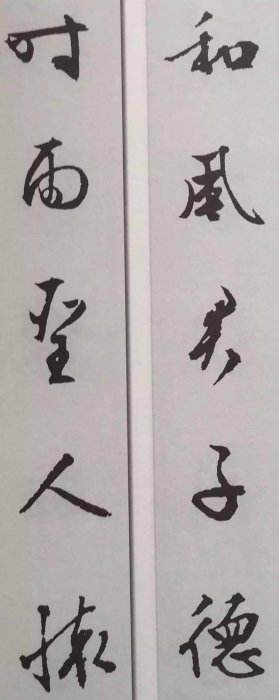 和風君子德
时雨聖人